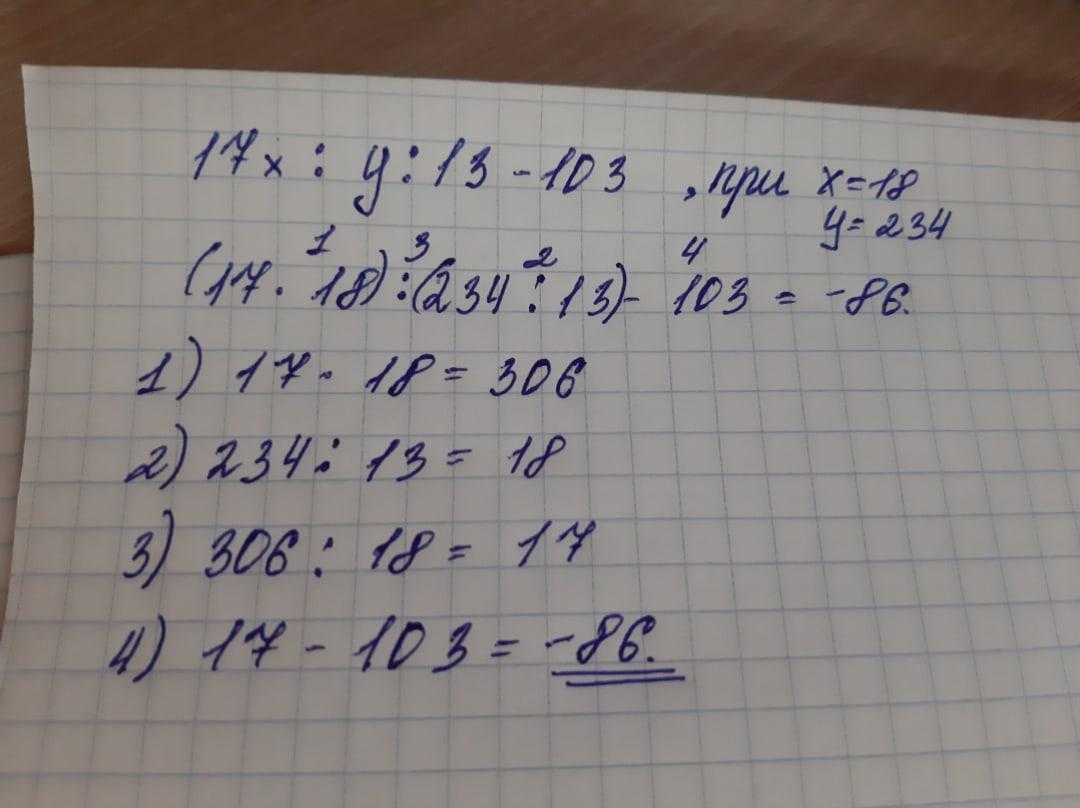 17x : y : 13 - 103 , при x = 18
y = 234
1 3 2 4
(17 · 18) : (234 : 13) - 103 = -86.
1) 17 · 18 = 306
2) 234 : 13 = 18
3) 306 : 18 = 17
4) 17 - 103 = -86.